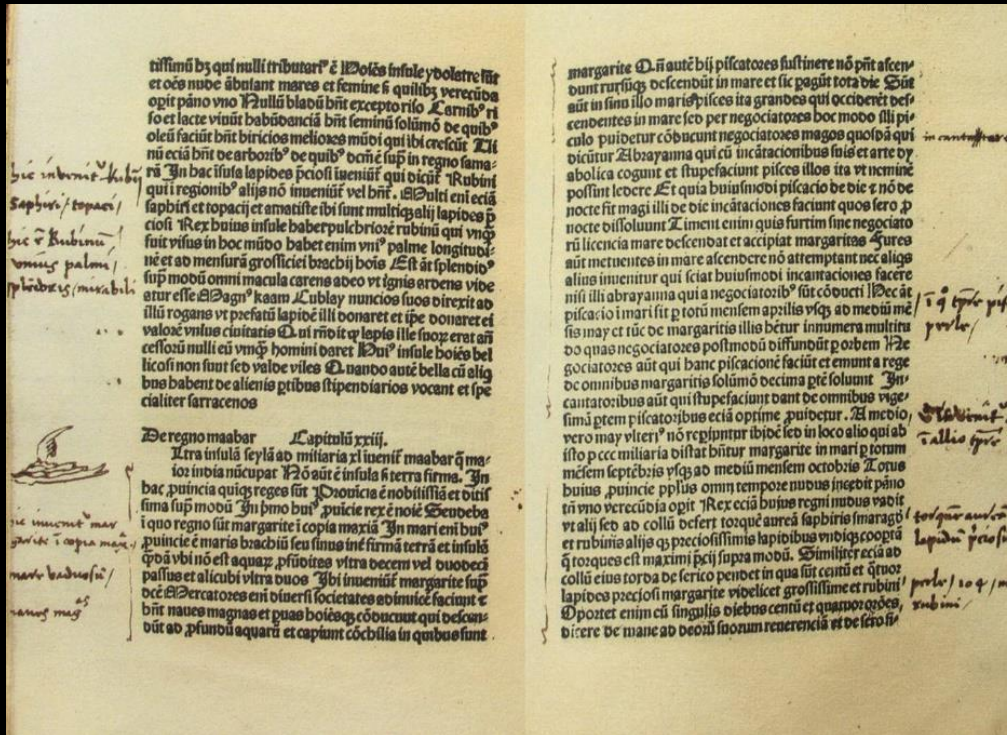 tissimū bʒ qui nulli tributari⁹ ē Hoīes insule ydolatre sūt
et oēs nude ābulant mares et femine sʒ quilibʒ verecūda
opit pāno vno Nullū bladū hn̄t excepto riso Carnibʒ ri
so et lacte viuūt habūdanciā hn̄t seminū solūmō de quibʒ
oleū faciūt hn̄t biricios meliores mūdi qui ibi crescūt Vi
nū eciā hn̄t de arboribʒ de quibʒ dcm̄ē sup̄ in regno sama
rū In hac īsula lapides p̄ciosi īueniūt qui dicūt̄ Rubini
qui ī regionibʒ alijs nō inueniūt̄ vel hn̄t. Multi eni eciā
saphiri et topacij et amatiste ibi sunt multiqʒ alij lapides p̄
ciosi Rex huius insule habet pulchriorē rubinū qui vnqʒ
fuit visus in hoc mūdo habet enim vni⁹ palme longitudi-
nē et ad mensurā grossiciei brachij hoīs Est āt splendid⁹
sup̄ modū omni macula carens adeo vt ignis ardens vide
atur esse Magn⁹ kaam Cublay nuncios suos direxit ad
illū rogans vt prefatū lapidē illi donaret et ip̄e donaret ei
valorē vnius ciuitatis Qui rn̄dit qʒ lapis ille suoꝝ erat an̄
cessorū nulli eū vmqʒ homini daret Hui⁹ insule hoīes bel
licosi non sunt sed valde viles Quando autē bella cū aliq̄
bus habent de alienis ꝑtibus stipendiarios vocant et spe
cialiter sarracenos
De regno maabar Capitulū xxiij.
Vltra insulā seylā ad miliaria xl īuenit̄ maabar q̄ ma-
ior india nūcupat̄ Nō aūt ē insula sʒ terra firma. In
hac ꝓuincia quiqʒ reges sūt Prouīcia ē nobilissīa et ditis
sima sup̄ modū In p̄mo hui⁹ ꝓuīcie rex ē noīe Seudeba
ī quo regno sūt margarite ī copia maxiā In mari eni hui⁹
ꝓuincie ē maris brachiū seu sinus int̄ firmā terrā et insulā
q̄dā vbi nō est aquaꝝ ꝓfūditas vltra decem vel duodecī
passus et alicubi vltra duos Ibi īueniūt̄ margarite sup̄
dcē Mercatores eni diuersi societates adinuicē faciunt ⁊
hn̄t naues magnas et ꝑuas hoīesqʒ cōducunt qui descen-
dūt ad ꝓfundū aquarū et capiunt cōchilia in quibus sunt
hic inuenit̄ Rubini
saphiri / topaci /
hic ē Rubinū /
vnius palmi /
splēdoris / mirabili
hic inueniūt̄ mar
garite ī copia max̄
mare vadosū /
naues maḡas
margarite Qn̄ autē hij piscatores sustinere nō pn̄t ascen-
dunt rursūqʒ descendūt in mare et sic ꝑagūt tota die Sūt
aūt in sinu illo maris pisces ita grandes qui occiderēt des-
cendentes in mare sed per negociatores hoc modo illi pi-
culo ꝓuidetur cōducunt negociatores magos quosdā qui
dicūtur Abrayanna qui cū incātacionibus suis et arte dy
abolica cogunt et stupefaciunt pisces illos ita vt neminē
possint ledere Et quia huiusmodi piscacio de die ⁊ nō de
nocte fit magi illi de die incātaciones faciunt quos sero ꝓ
nocte dissoluunt Timent enim quis furtim sine negociato
rū licencia mare descendat et accipiat margaritas Fures
aūt metuentes in mare ascendere nō attemptant nec aliqs
alius inuenitur qui sciat huiusmodi incantaciones facere
nisi illi abrayanna qui a negociatoribʒ sūt cōducti Hec āt
piscacio ī mari fit ꝑ totū mensem aprilis vsqʒ ad mediū mē
sis may et tūc de margaritis illis hētur innumera multitu
do quas negociatores postmodū diffundūt ꝑ orbem Ne
gociatores aūt qui hanc piscacionē faciūt et emunt a rege
de omnibus margaritis solūmō decima ꝑtē soluunt In-
cantatoribus aūt qui stupefaciunt dant de omnibus vige-
simā ꝑtem piscatoribus eciā optime ꝓuidetur. A medio
vero may vlteri⁹ nō reꝑiuntur ibidē sed in loco alio qui ab
isto ꝑ ccc miliaria distat hn̄tur margarite in mari ꝑ totum
mēsem septēbris vsqʒ ad mediū mensem octobris Totus
huius ꝓuincie pplʒs omni tempore nudus incedit pāno
tn̄ vno verecūdia opit Rex eciā huius regni nudus vadit
vt alij sed ad collū defert torquē aureā saphiris smaragd⁹
et rubinis alijsqʒ preciosissimis lapidibus vndiqʒ coopertā
q̄ torques est maximi p̄cij supra modū. Similiter eciā ad
collū eius torda de serico pendet in qua sūt centū et q̄tuor
lapides preciosi margarite videlicet grossissime et rubini
Oportet enim eū singulis diebus centū et quatuor orōes,
dicere de mane ad deorū suorum reuerenciā et de sero si-
ī q̄ tp̄re
perle /
ī allio tp̄re
torquē aureā
lapidū p̄ciosū
perle / 104 /
rubini /